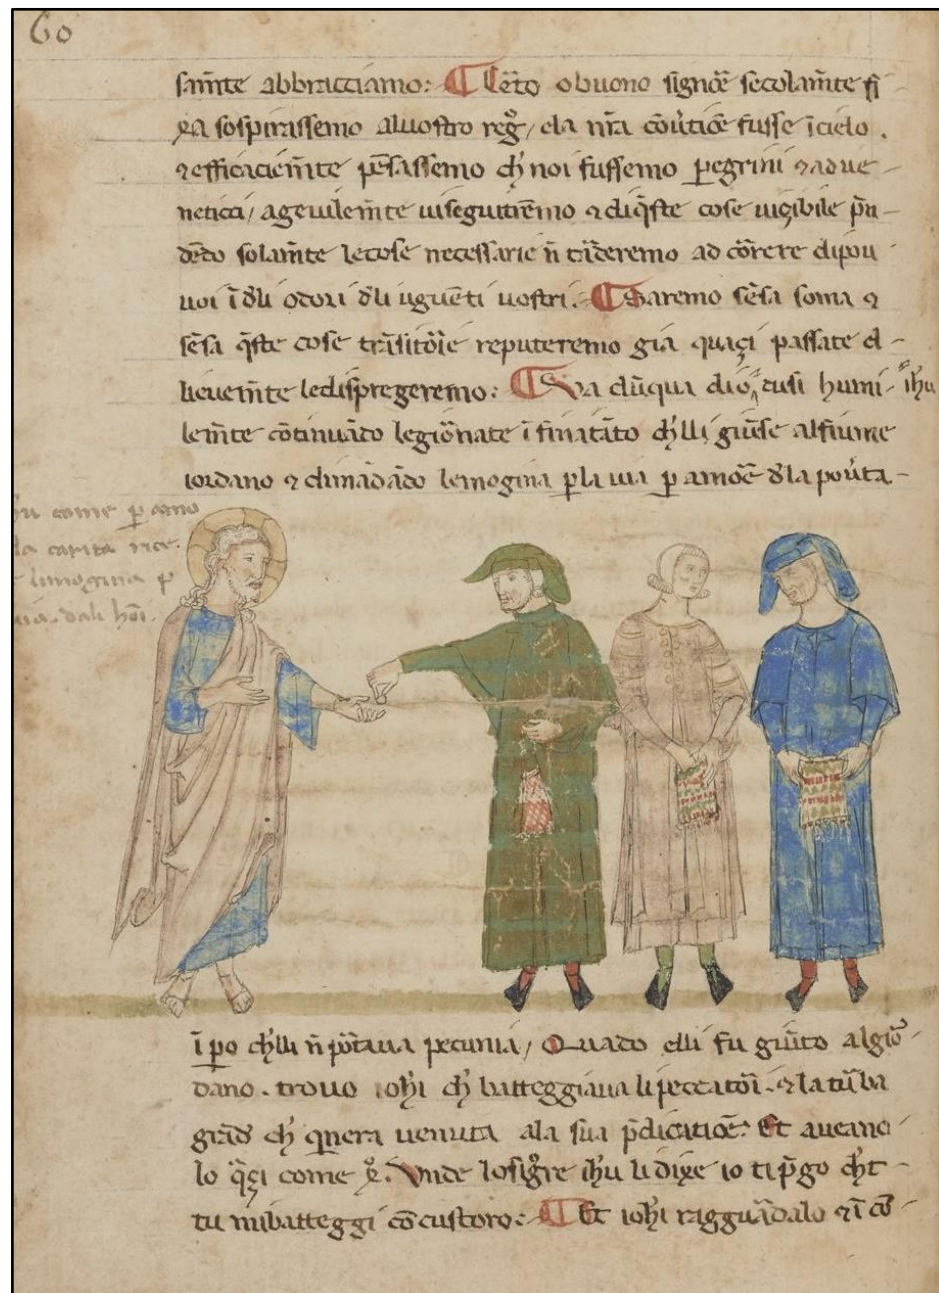 60
sam̅te abbracciamo: ¶ Certo o buono signor̅ secolam̅te si
xp̅a sospirassemo al uostro reg̊/ e la nr̅a cōu̅tiōe fusse ī cielo .
⁊ efficaciem̅te pēsassemo ch̅ noi fussemo p̲egrini ⁊ adue
netici/ ageuilem̅te uiseguitremo ⁊ di q̅ste cose uiçibile p̅n
dēdo solam̅te le cose necessarie n̅ t̅deremo ad cōrere dipou
uoi ī d̅li odori d̅li uguēti uostri. ¶ Saremo sēsa soma ⁊
sēsa q̅ste cose trāsitōie reputeremo già quaçi passate e
lieuem̅te le dispregeremo: ¶ Va dūqua dio cusi humi ih̅u
lem̅te cōtinuādo le giornate ī finatāto ch̅lli giūse al fiume
iordano ⁊ dimādādo lemogina p̲ la uia p̲ amoē d̅la pou̅ta
come p̲ amo
la carita rice
limogina p̲
uia. dali hoi̅.
ī p̲o ch̅lli n̅ pōtaua pecunia/ Quādo elli fu giūto al giō
dano. trouo ioh̅i ch̅ batteggiaua li peccatōi. ⁊ la tūba
grād̅ ch̅ q̅nera uenuta ala sua p̅dicatiōe: Et aueano
lo q̅çi come xp̅. Vnde lo sigr̅e ih̅u li dixe io ti p̅go ch̅
tu mi batteggi cō custoro: ¶ Et ioh̅i ragguādalo ⁊ ī co̅